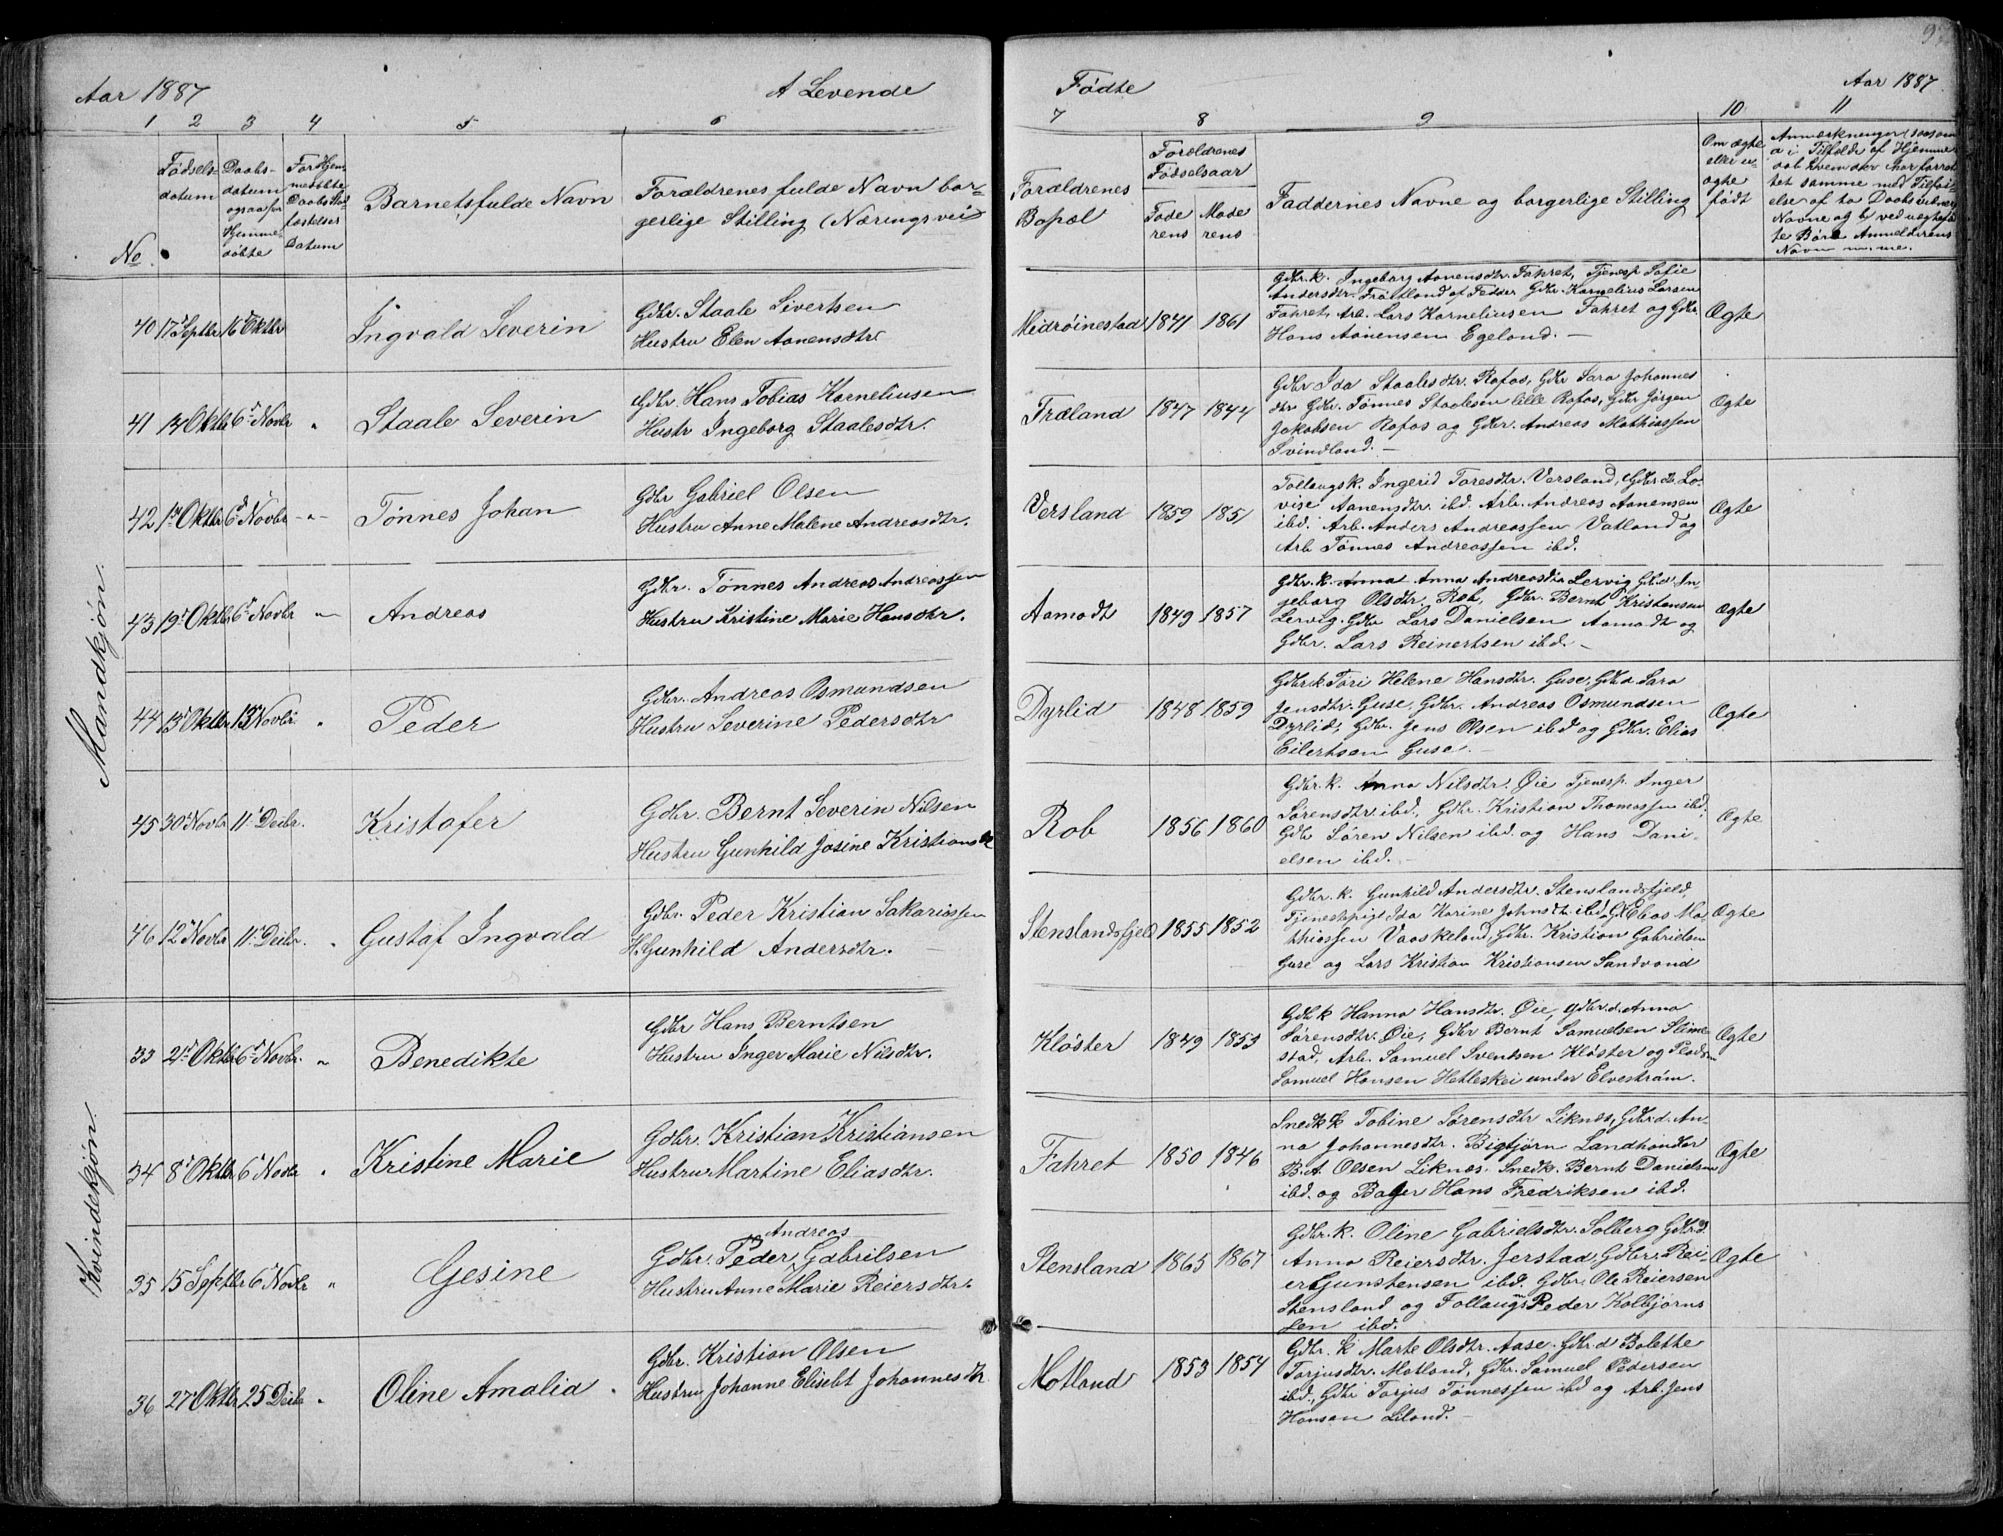 Aar 1887
A Levende
Fødte
Aar 1887
1 2 3 4 5 6 7 8 9 10 11
No
Fødsels-
datum
Daabs-
datum
ogsaa for
Hjemme-
døbte
For Hjem-
medøbte
Daabs Stad-
festelses
Datum
Barnets fulde Navn
Forældrenes fulde Navn bor-
gerlige Stilling (Næringsvei
Forældrenes
Bopæl
Forældrenes
Fødselsaar
Fade
rens
Mode
rens
Faddernes Navne og borgerlige Stilling
Om ægte
elli u-
ægte
født
Anmærkninger (saasom
a i Tilfælde af Hjemme
daab hvem der har forret
tet samme med Tilføi-
else af to Daabsvidners
Navne og b ved uægtefød
te Børn Anmelderens
Navn m. me.
Mandkjøn.
40 17 Septbr 16 Oktbr
Ingvald Severin
Gdbr. Staale Sivertsen
Hustru Elen Aanensdtr
Meidrøinestad 1841 1861
Gdbr. k. Ingeborg Aanensdtr. Fahret, Tjenesp Sofie
Andersdtr. Frøitland af Fedder Gdbr. Kornelius Larsen
Fahret, Arb. Lars Korneliusen Fahret og Gdbr.
Hans Aanensen Egeland. —
Ægte
41 14 Oktbr 6 Novbr "
Staale Severin
Gdbr. Hans Tobias Korneliusen
Hustr Ingeborg Staalesdtr.
Træland 1847 1844
Gdbr Ida Staalesdtr. Rafos, Gdbr Sara Johannes
dtr Gdbr. Tønnes Staalesen lille Rafos, Gdbr Jørgen
Jakobsen Rafos og Gdbr. Andreas Mathiassen
Svindland. —
Ægte
42 1 Oktbr 6 Novbr - " -
Tønnes Johan
Gdbr Gabriel Olsen
Hustru Anne Malene Andreasdtr.
Versland 1859 1851
Tollaugsk. Ingerid Taresdtr. Versland, Gdbr d. Lo-
vise Aanensdtr. ibd. Arb. Andreas Aanensen
ibd. Arb. Anders Andreassen Vatland og
Arb Tønnes Andreassen ibd.
Ægte
43 19 Oktbr 6 Novbr "
Andreas
Gdbr. Tønnes Andreas Andreassen
Hustru Kristine Marie Hansdtr.
Aamodt 1849 1857
Gdbr. k. Anna Anna Andreasdtr Lervig Gb.d. In
geborg Olsdtr. Rob, Gdbr. Bernt Kristensen
Lervig. Gdbr Lars Danielsen Aamodt og
Gdbr. Lars Reinertsen ibd. -
Ægte
44 13 Oktbr 13 Novbr "
Peder
Gdbr. Andreas Osmundsen
Hustru Severine Pedersdtr
Dyrlid 1848 1859
Gdbr. k Tori Helene Hansdtr. Guse, Gdbr.d. Sara
Jensdtr. Guse, Gdbr. Andreas Osmundsen
Dyrlid, Gdbr. Jens Olsen ibd og Gdbr. Elias
Eilertsen Guse. -
Ægte
45 30 Novbr 11 Decbr.
Kristofer
Gdbr. Bernt Severin Nilsen
Hustru Gunhild Josine Kristiansdtr
Rob 1856 1860
Gdbr. k. Anna Nilsdtr. Øie Tjenesp. Inger
Sørensdtr ibd., Gdbr. Kristian Thomassen ibd,
Gdbr Søren Nilsen ibd. og Hans Dani-
elsen ibd. -
Ægte
46 12 Novbr 11 Decbr. "
Gustaf Ingvald
Gdbr. Peder Kristian Sakariassen
H. Gunhild Andersdtr. —
Stenslandsfjeld 1855 1852
Gdbr. k. Gunhild Andersdtr. Stenslandsfjeld
Tjenestepige Ida Karine Johnsdtr. ibd, G. Elias Ma-
thiassen Vaaskeland, Gdbr. Kristian Gabrielsen
Guse og Lars Kristian Kristiansen Sandvand
Ægte
Kvindekjøn.
33 2 Oktbr 6 Novbr. "
Benedikte
Gdbr Hans Berntsen
Hustru Inger Marie Nilsdtr.
Kløster 1849 1853
Gdbr k Hanna Hansdtr. Øie, gdbr.d. Anna
Sørensdtr. Øie, Gdbr Bernt Samuelsen Slime-
stad, Arb. Samuel Sventsen Kløster og
Samuel Hansen Hetleskei under Elvestrøm.
Ægte
34 8 Oktbr 6 Novbr "
Kristine Marie
Gdbr. Kristian Kristiansen
Hustru Martine Eliasdtr.
Fahret 1850 1846
Snedk k Tobine Sørensdtr Liknes, Gdbr.d. An-
na Johannesdtr. Bigbjørn Landhandler
B.A. Olsen Liknes. Snedk. Bernt Danielsen
ibd. og Bager Hans Fredriksen ibd.
Ægte
35 15 Septbr 6 Novbr "
Gesine
Andreas
Gdbr. Peder Gabrilsen
Hustru Anne Marie Reiersdtr.
Stensland 1865 1867
Gdbr. k. Oline Gabrielsdtr. Solberg Gdbr.d
Anna Reiersdtr. Jerstad, Gdbr. Rei-
er Gunstensen ibd. Gdbr. Ole Reiersen
Stensland og Tollaugsm Peder Kolbjørns
sen ibd.
Ægte
36 27 Oktbr 25 Decbr "
Oline Amalia.
Gdbr. Kristian Olsen
Hustru Johanne Elisebt Johannesdtr
Motland 1853 1854
Gdbr. k Marte Olsdtr. Aase. Gdbr.d Bolette
Torjusdtr. Motland, Gdbr. Samuel Pedersen
ibd, Gdbr Torjus Tønnessen ibd og Arb. Jens
Hansen Liland. -